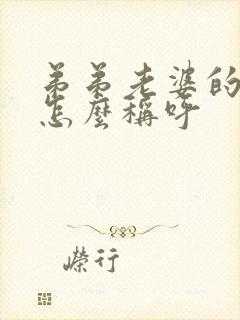 弟弟老婆的
怎麼稱呼
嶸行